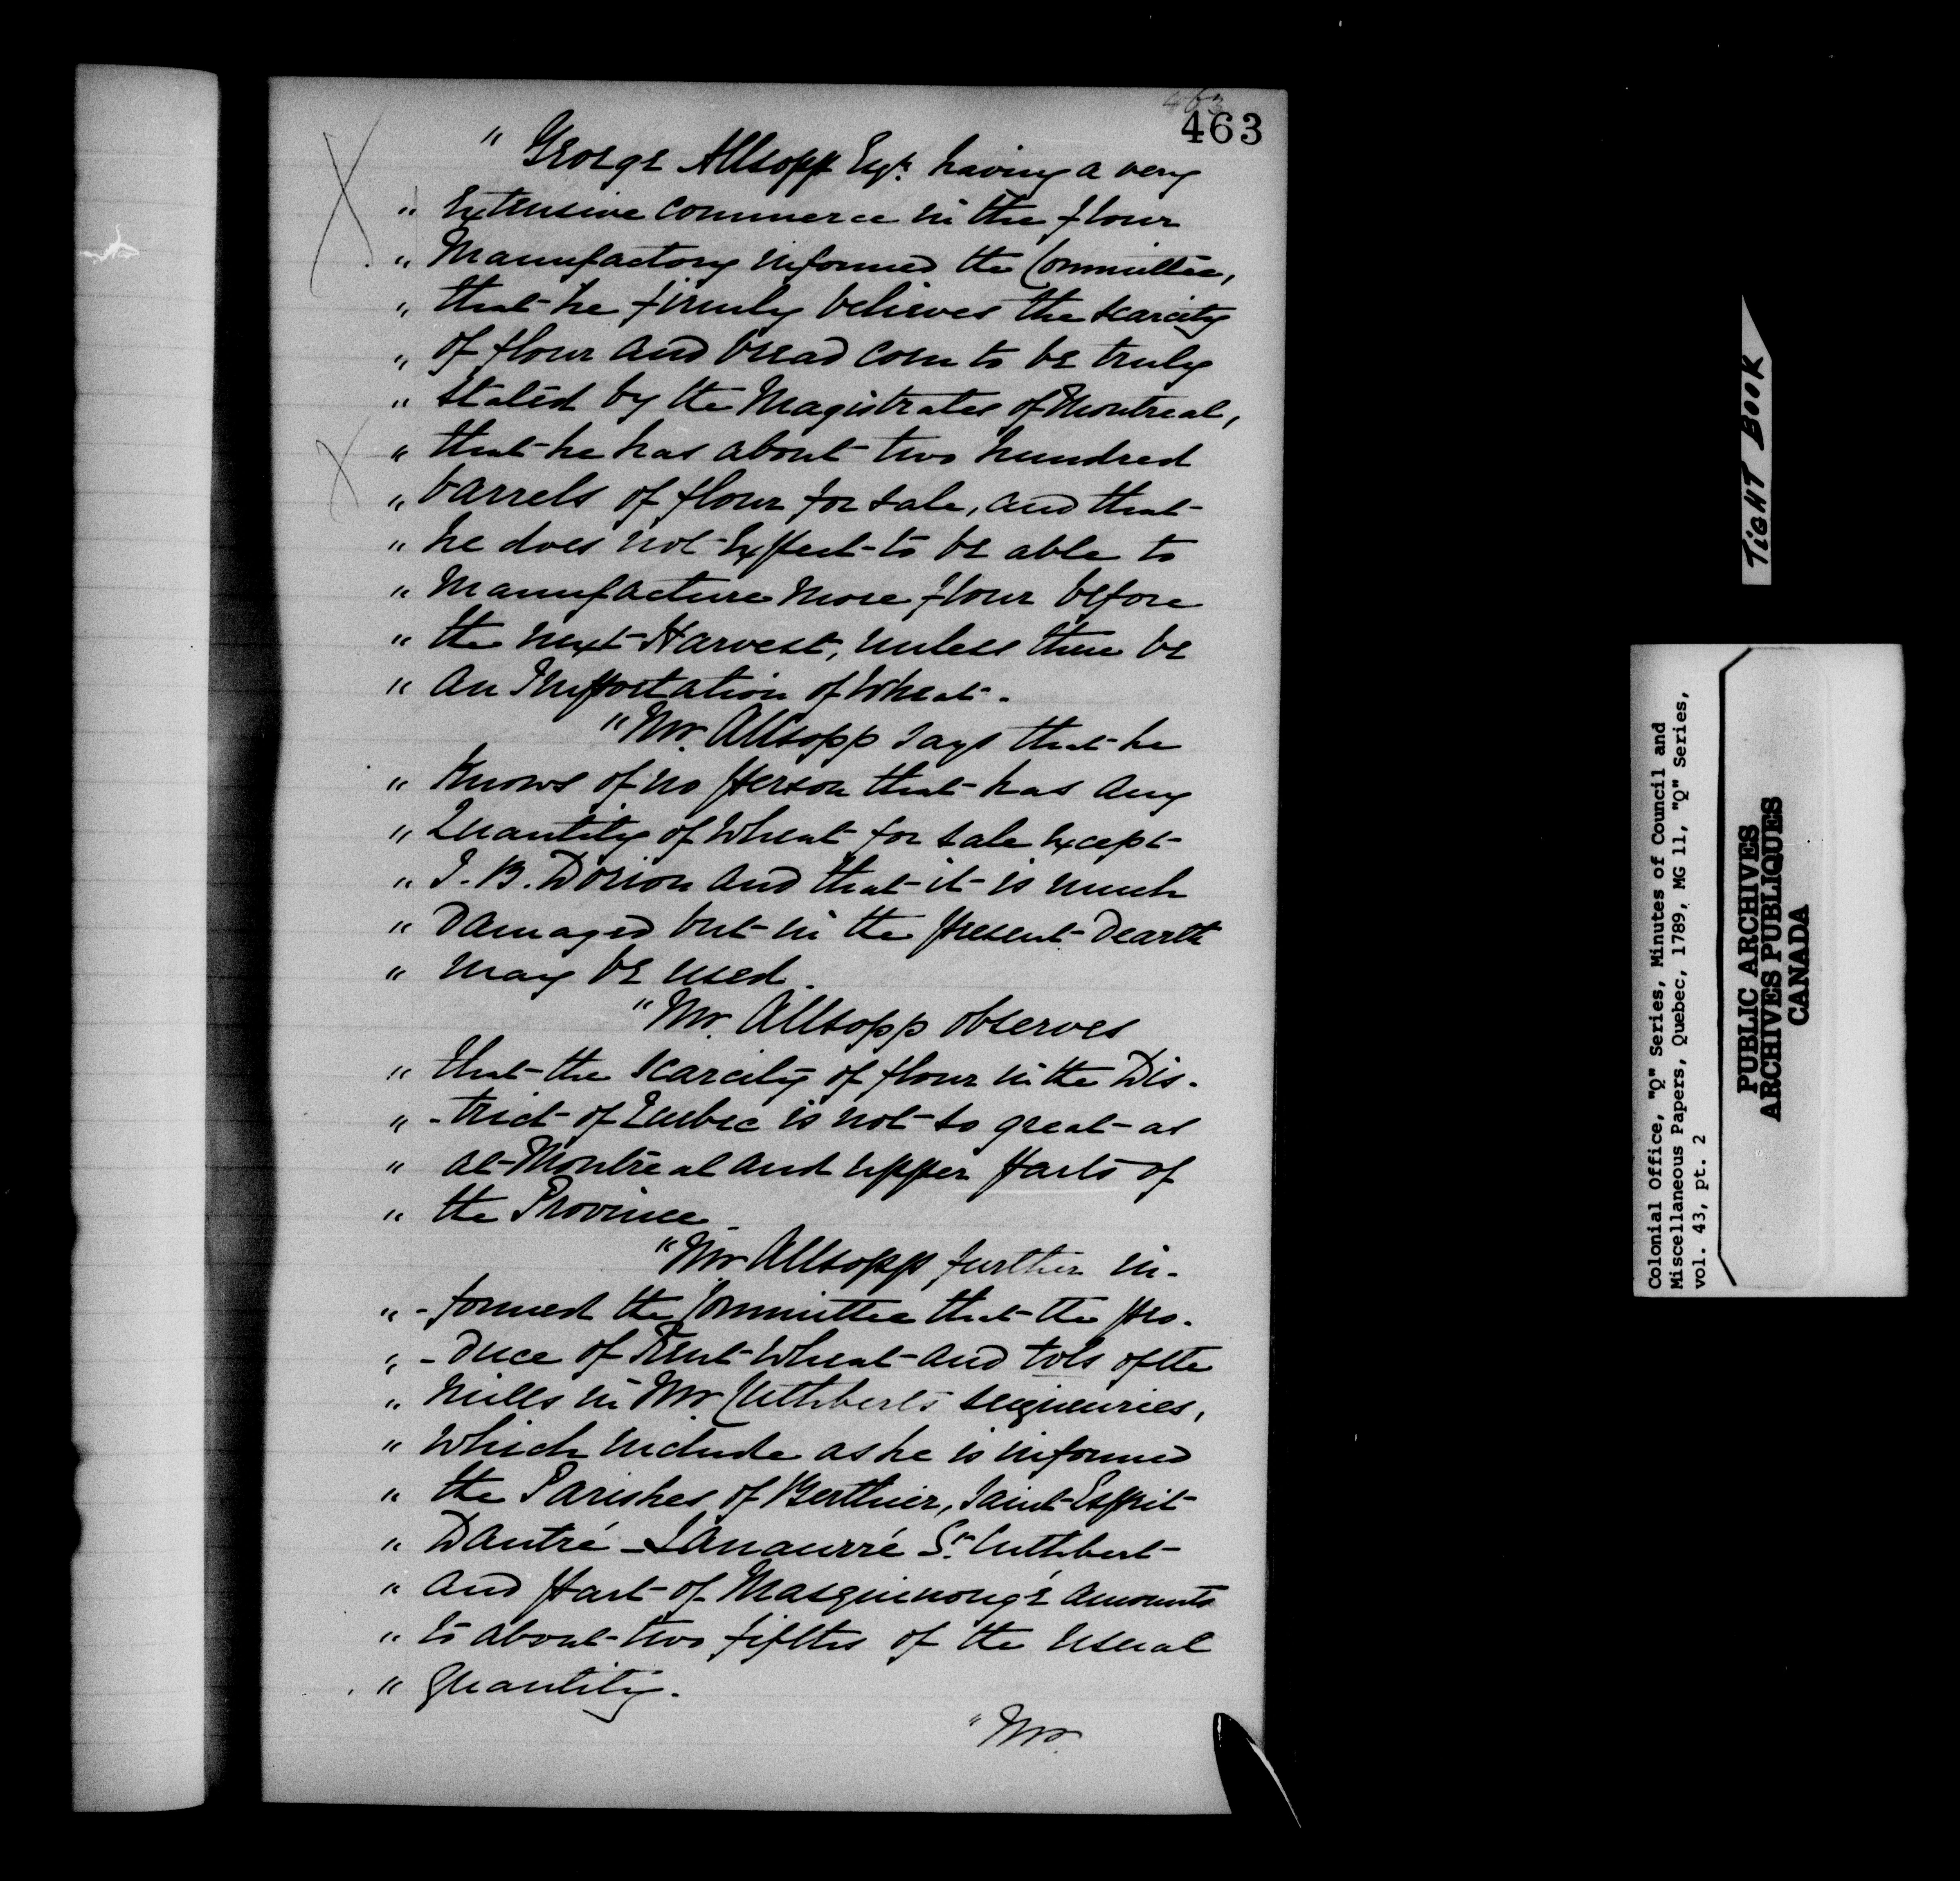 463
463
" George Allsopp Esqr. having a very
" Extensive commerce in the flour
" Manufactory informed the Committee,
" that he firmly believes the scarcity
" of flour and bread corn to be truly
" stated by the Magistrates of Montreal,
" that he has about two hundred
" barrels of flour for sale, and that
" he does not Expect to be able to
" Manufacture more flour before
" the next Harvest, unless there be
" an Importation of Wheat.
" Mr. Allsopp says that he
" Knows of no person that has any
" Quantity of Wheat for sale Except
" J. B. Dorion and that it is much
" Damaged but in the present Dearth
" may be used.
" Mr. Allsopp observes
" that the scarcity of flour in the Dis-
" -trict of Quebec is not so great as
" at Montreal and upper parts of
" the Province.
" Mr Allsopp further in-
" -formed the Committee that the pro-
" -duce of Rent Wheat and tols of the
" Mills in Mr Cuthberts seigneuries,
" Which include as he is informed
" the Parishes of Berthier, Saint Esprit
" Dautré - Lanaurré St. Cuthbert
" and part of Masquinongé amounts
" to about two fifths of the usual
" Quantity.
" Mr.
TIGHT BOOK
Colonial Office, "Q" Series, Minutes of Council and
Miscellaneous Papers, Quebec, 1789, MG 11, "Q" Series,
vol. 43, pt. 2
PUBLIC ARCHIVES
ARCHIVES PUBLIQUES
CANADA